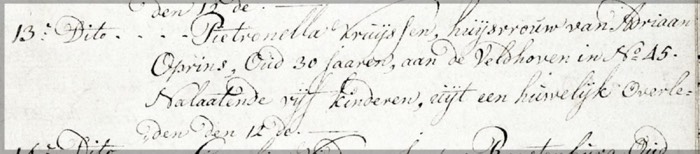 den 12 de.
13: Dito . . . . Pietronella Kruijssen, huijsvrouw van Adriaan
Oprins, Oud 30 Jaaren, aan de Veldhoven in No 45.
Nalaatende vijf kinderen, uijt een huwelijk Overle-
den den 12 de.
Dito Oud